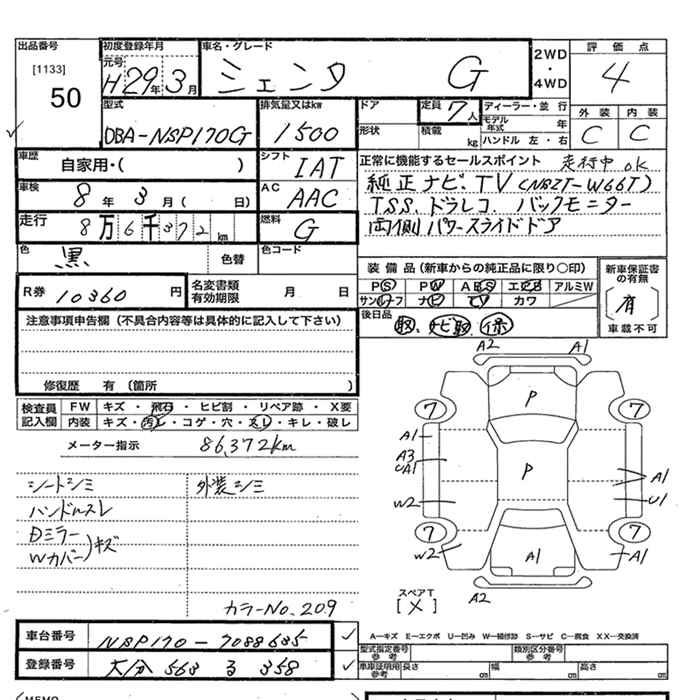 出品番号
[1133]
50
初度登録年月
元号
H 29年 3月
車名・グレード
シエンタ G
2WD
・
4WD
評価点
4
型式
DBA-NSP170G
排気量又はkw
1500
ドア
形状
定員
7人
積載
kg
ディーラー・並行
モデル年式
年
ハンドル 左・右
外装
C
内装
C
車歴
自家用・( )
シフト
IAT
正常に機能するセールスポイント 走行中ok
純正ナビ、TV (NSZT-W66T)
TSS、ドラレコ、バックモニター
両側パワースライドドア
車検
8年 3月 ( 日)
AC
AAC
走行
8万6千372km
燃料
G
色
黒
色替
色コード
装備品 (新車からの純正品に限り○印)
PS PW ABS エアB アルミW
サンルーフ ナビ TV カワ
新車保証書の有無
有
車載不可
R券
10360円
名変書類有効期限
月 日
後日品
取、ナビ取、保
注意事項申告欄 (不具合内容等は具体的に記入して下さい)
修復歴 有 (箇所 )
検査員記入欄
FW キズ・飛石・ヒビ割・リペア跡・X要
内装 キズ・汚レ・コゲ・穴・スレ・キレ・破レ
メーター指示 86,372km
シートシミ
外装シミ
ハンドルスレ
Dミラー
Wカバー)キズ
カラーNo.209
A2 A1
P
7 7
A1
A3
UA1
P
A1
U1
W2
7 7
W2
A1
A1
スペアT
[X]
A2
車台番号 NSP170-7088635
登録番号 大分 563 る 358
A−キズ E−エクボ U−凹み W−補修跡 S−サビ C−腐食 XX−交換済
型式指定番号
参考
類別区分番号
参考
車車証明用
参考
長さ cm 幅 cm 高さ cm
MEMO